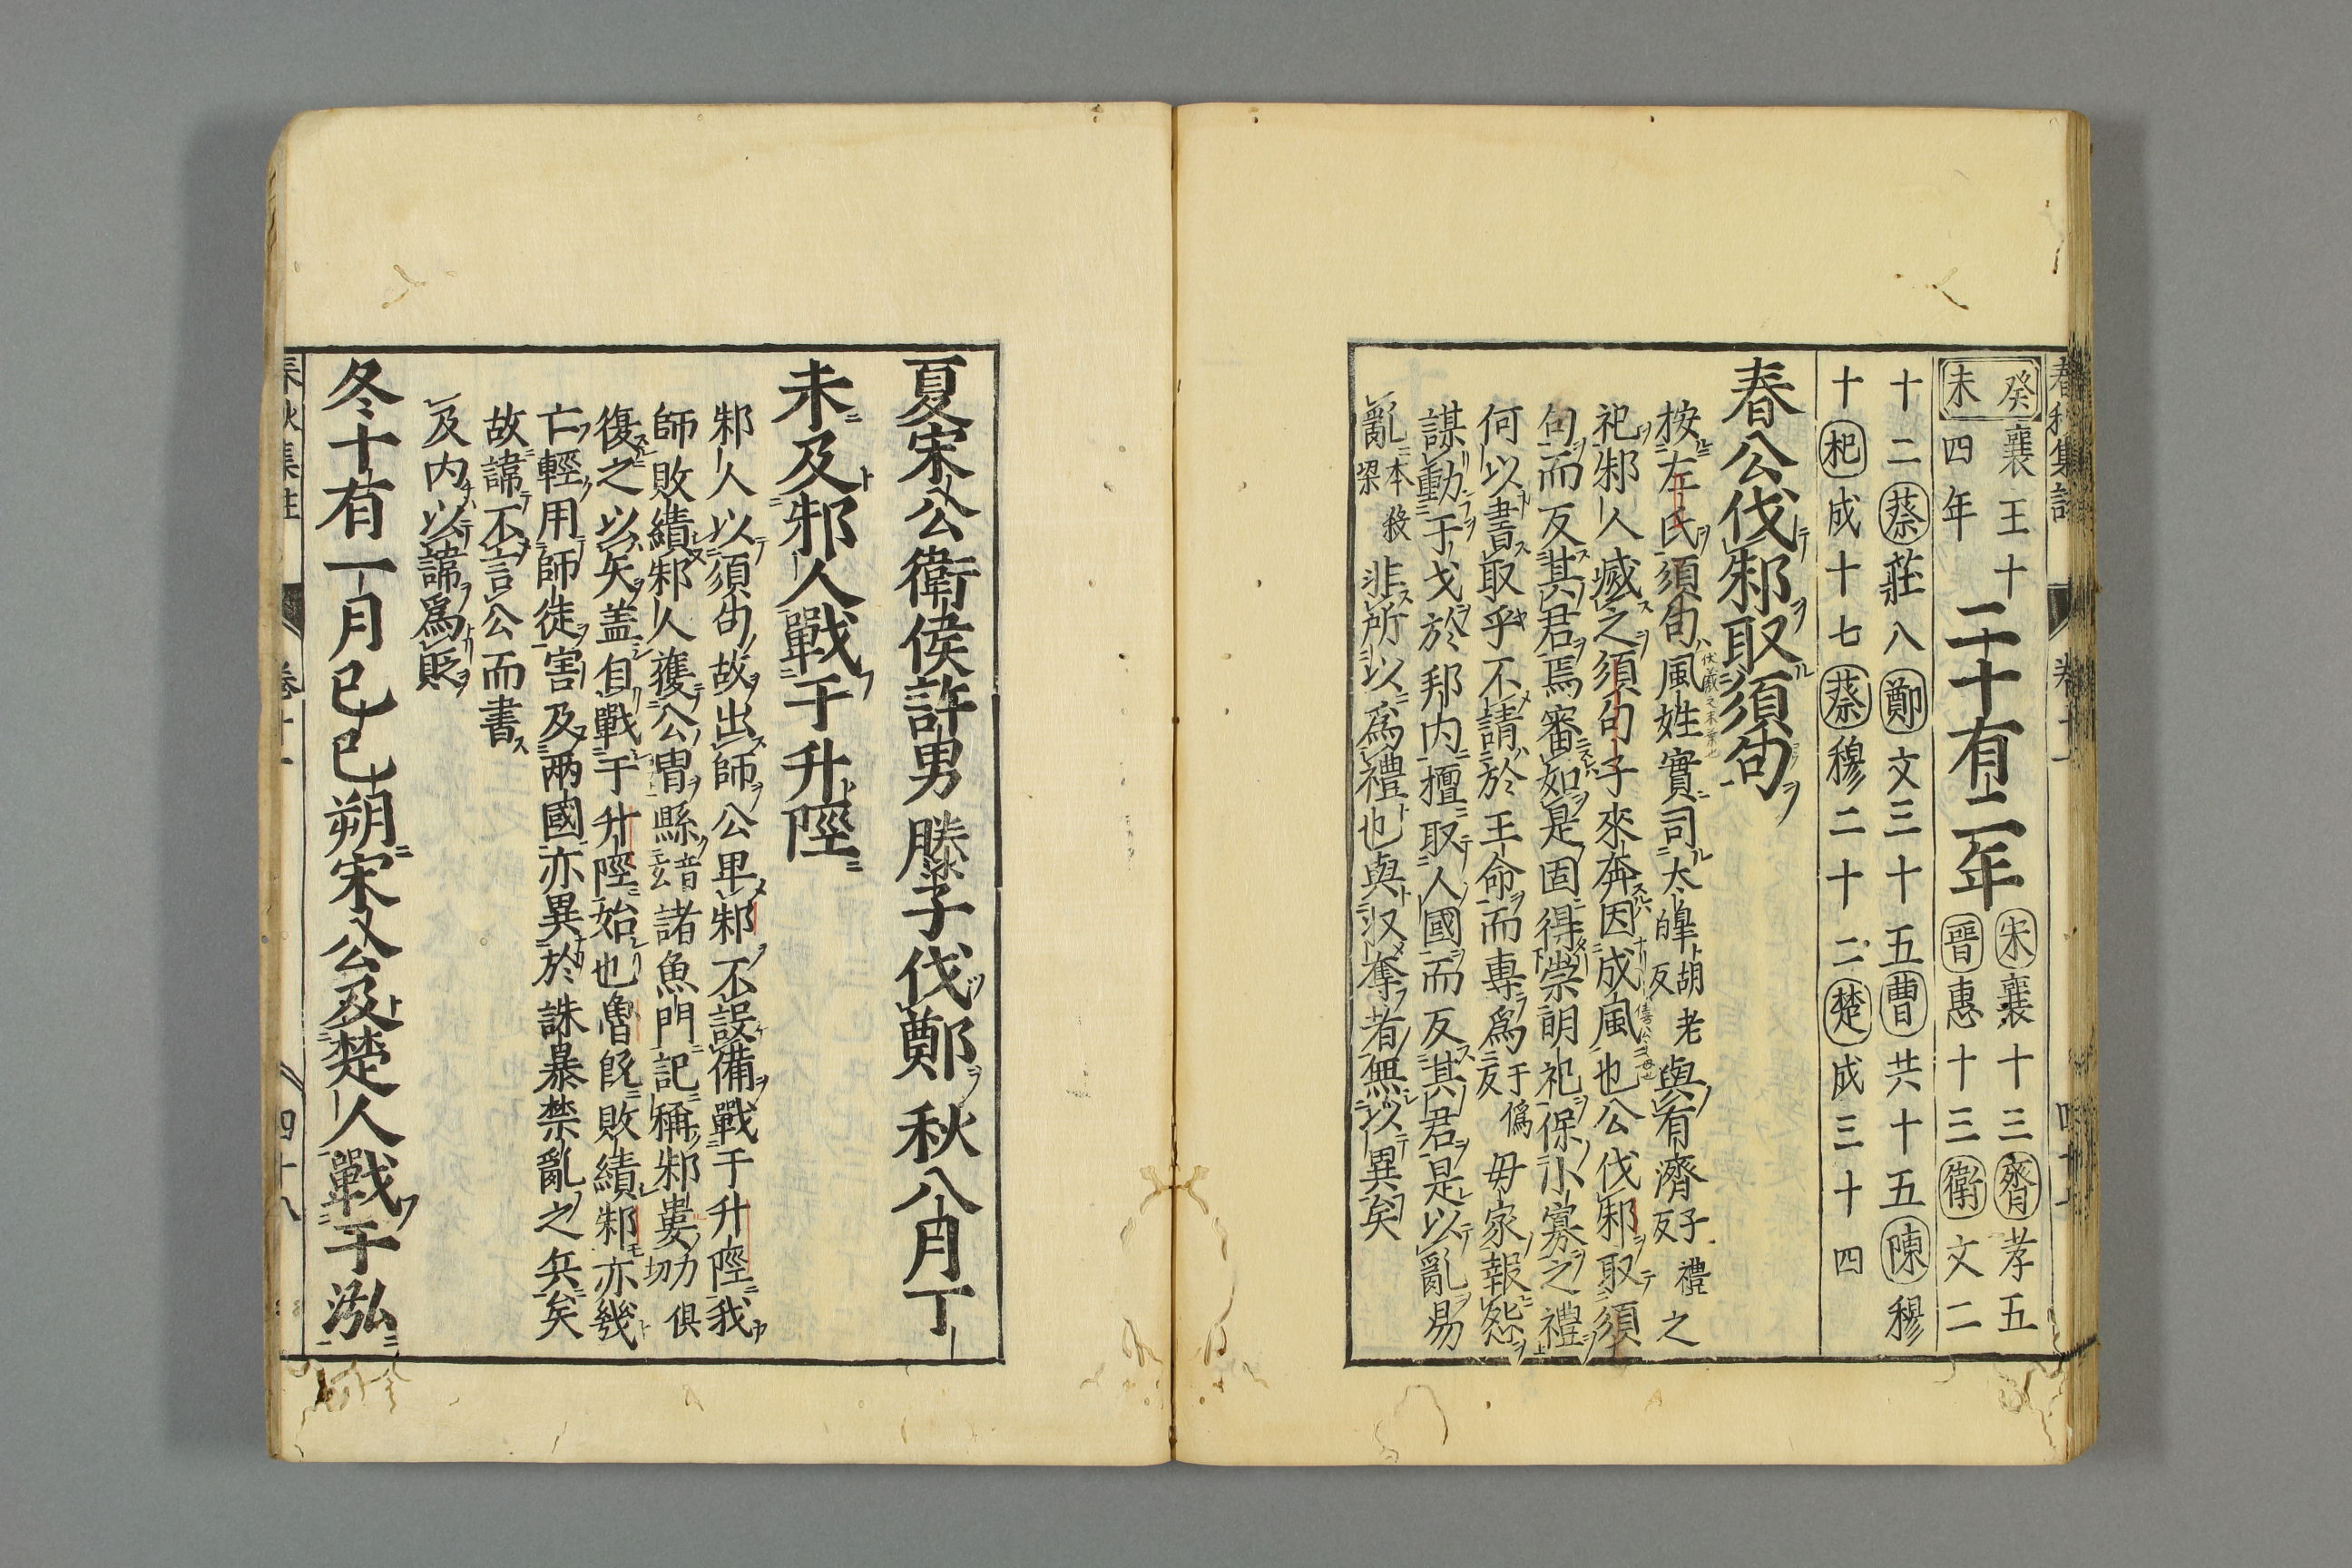 癸未 襄王十四年 二十有二年 宋襄十三齊孝五晉惠十三衛文二
十二蔡莊八鄭文三十五曹共十五陳穆
十杞成十七蔡穆二十二楚成三十四
春公伐邾取須句
按左氏須句風姓實司太皥胡老反與有濟子禮反之
祀邾人滅之須句子來奔因成風也公伐邾取須
句而反其君焉審如是固得崇明祀保小寡之禮
何以書取乎不請於王命而專爲于僞反母家報怨
謀動干戈於邦內擅取人國而反其君是以亂易
亂本殺梁非所以爲禮也與收奪者無以異矣
夏宋公衛侯許男滕子伐鄭秋八月丁
未及邾人戰于升陘
邾人以須句故出師公卑邾不設備戰于升陘我
師敗績邾人獲公冑縣音玄諸魚門記稱邾婁力俱切
復之以矢盖自戰于升陘始也魯旣敗績邾亦幾
亡輕用師徒害及兩國亦異於誅暴禁亂之兵矣
故諱不言公而書
及內以諱爲貶
冬十有一月己巳朔宋公及楚人戰于泓
春秋集註 卷十一 四十八